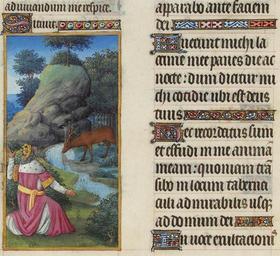 ad iuvandum me respice.
apparabo ante faciem
dei
Fuerunt michi la
crime mee panes die ac
nocte: dum dicitur mi
chi cotidie ubi est deus
tuus
Hec recordatus sum
et effudi in me animam
meam: quoniam tran
sibo in locum taberna
culi admirabilis usque
ad domum dei
In voce exultacionis